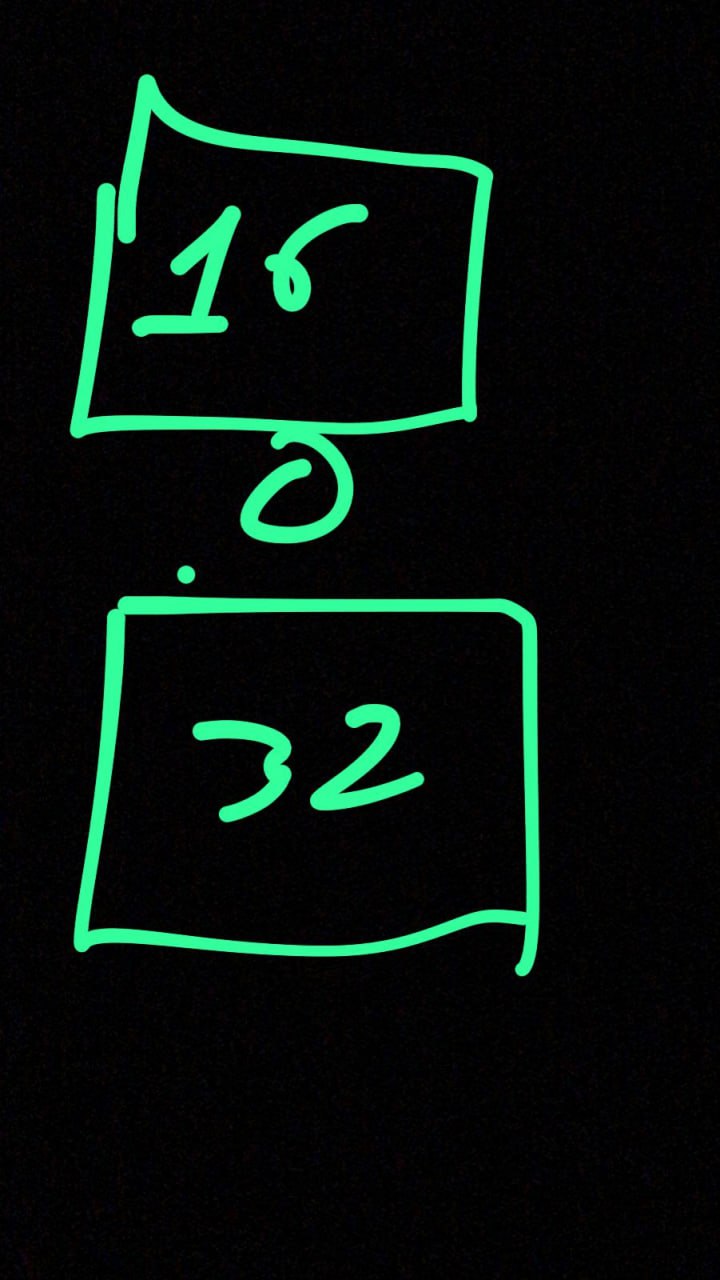 16
0
32